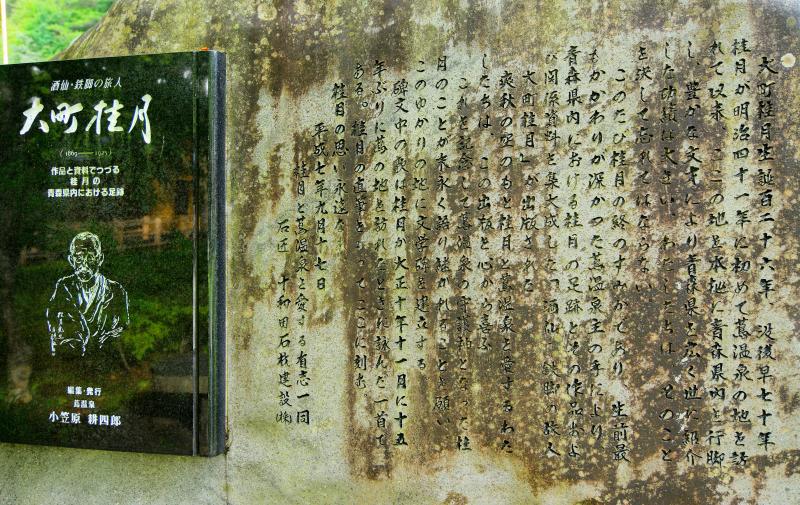 大町桂月生誕百二十六年 没後早七十年
桂月が明治四十一年に初めて蔦温泉の地を訪
れて以来、ここの地を本拠に青森県内を行脚
し、豊かな文才により青森県を広く世に紹介
した功績は大きい。わたしたちは、そのこと
を決して忘れてはならない。
このたび桂月の終のすみかであり、生前最
もかかわりが深かった蔦温泉主の手により
青森県内における桂月の足跡とその作品およ
び関係資料を集大成した「酒仙・鉄脚の旅人
大町桂月」が出版された。
爽秋の空のもと桂月と蔦温泉を愛するわた
したちは、この出版を心から喜ぶ。
これを記念して蔦温泉の守護神となった桂
月のことが末永く語り継がれることを願い
このゆかりの地に文学碑を建立する。
碑文中の歌は桂月が大正十年十一月に十五
年ぶりに蔦の地を訪れたとき詠んだ一首で
ある。桂月の直筆をもってここに刻み、
桂月の思い永遠
平成七年九月十七日
桂月と蔦温泉を愛する有志一同
石匠 十和田石材建設㈱
酒仙・鉄脚の旅人
大町桂月
(1869―1925)
作品と資料でつづる
桂月の
青森県内における足跡
編集・発行
蔦温泉
小笠原 耕四郎